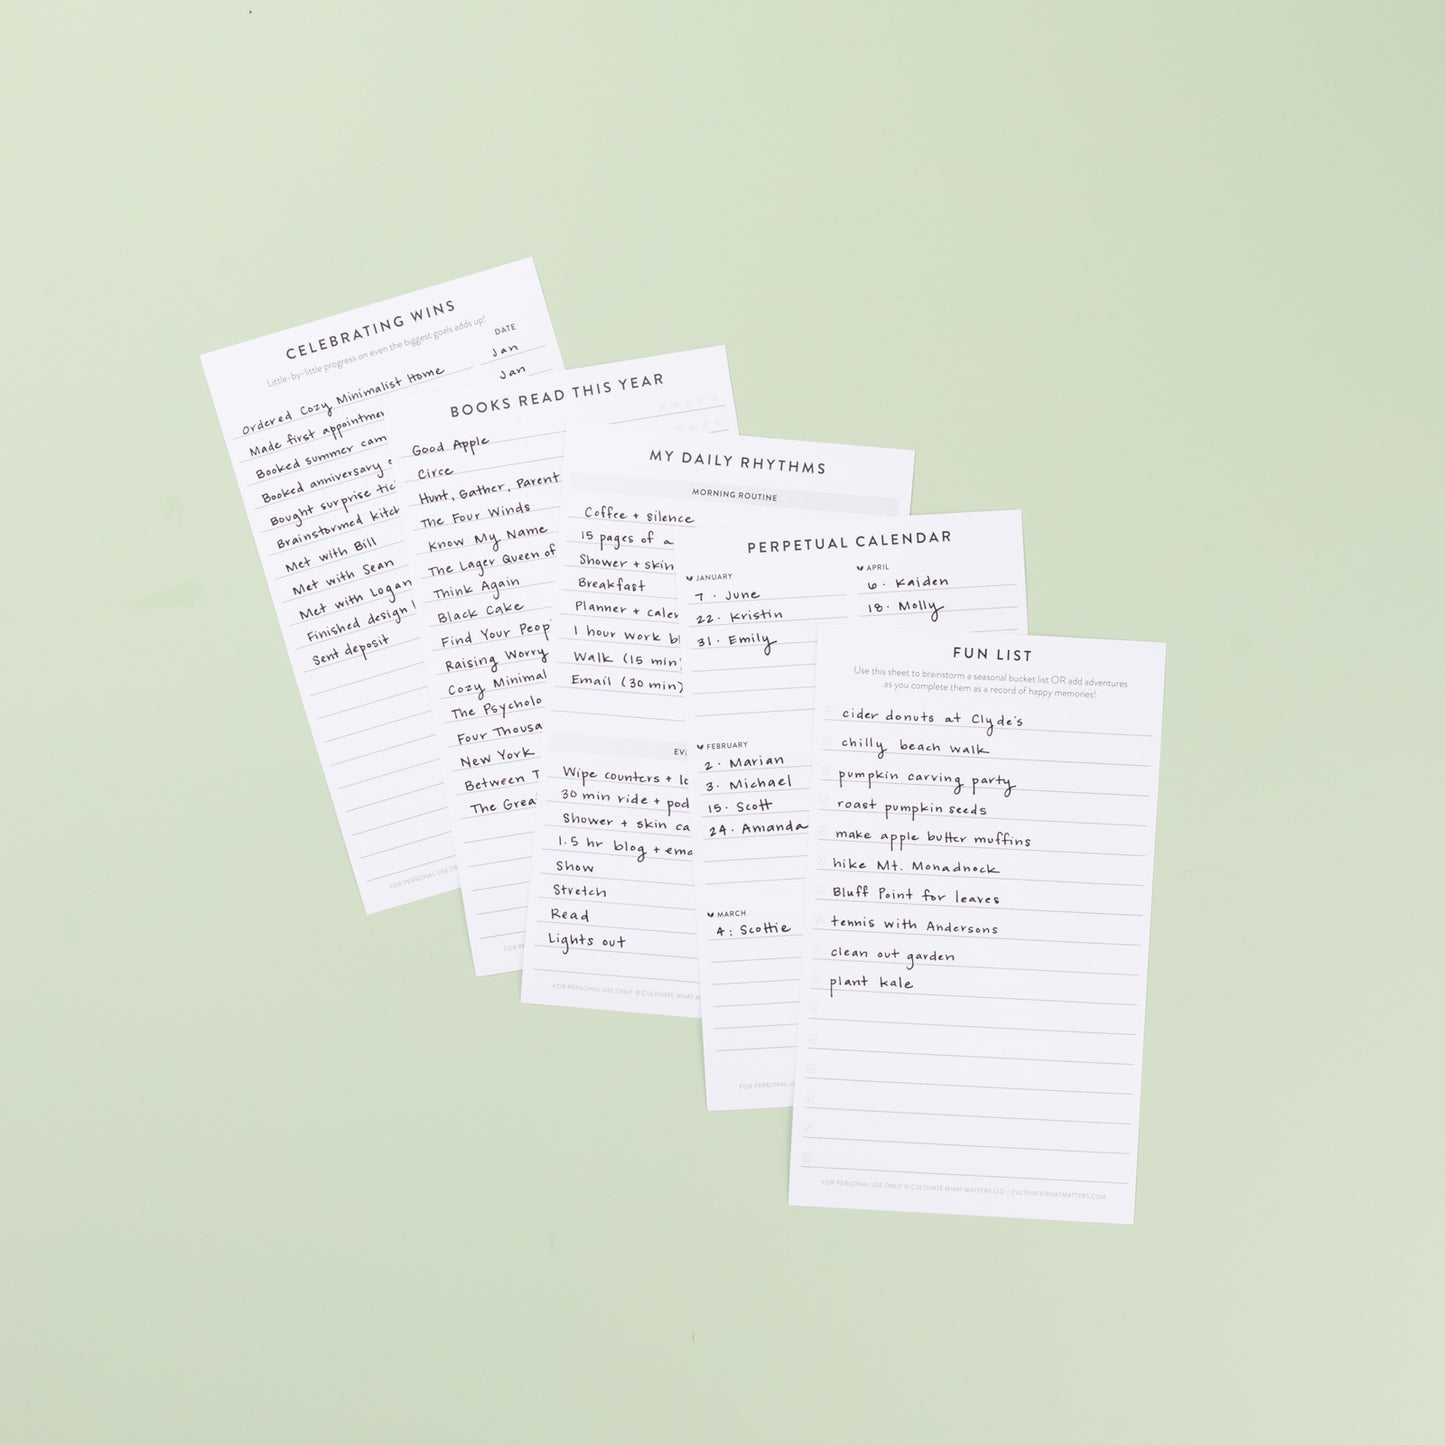 CELEBRATING WINS
Little-by-little progress on even the biggest goals adds up!
DATE
Ordered Cozy Minimalist Home Jan
Made first appointmen Jan
Booked summer cam
Booked anniversary
Bought surprise tic
Brainstormed kitch
Met with Bill
Met with Sean
Met with Logan
Finished design
Sent deposit
FOR PERSONAL USE ON
BOOKS READ THIS YEAR
Good Apple
Circe
Hunt, Gather, Parent
The Four Winds
Know My Name
The Lager Queen of
Think Again
Black Cake
Find Your Peop
Raising Worry
Cozy Minimal
The Psycholo
Four Thousa
New York
Between T
The Grea
FOR P
MY DAILY RHYTHMS
MORNING ROUTINE
Coffee + silence
15 pages of a
Shower + skin
Breakfast
Planner + calen
1 hour work bl
Walk (15 min)
Email (30 min)
EV
Wipe counters + lo
30 min ride + pod
Shower + skin ca
1.5 hr blog + ema
Show
Stretch
Read
Lights out
FOR PERSONAL USE ONLY. © CULTIVATE WHAT MA
PERPETUAL CALENDAR
JANUARY
7 · June
22 · Kristin
31 · Emily
FEBRUARY
2 · Marian
3 · Michael
15 · Scott
24 · Amanda
MARCH
4 : Scottie
APRIL
6 · Kaiden
18 · Molly
FOR PERSONAL U
FUN LIST
Use this sheet to brainstorm a seasonal bucket list OR add adventures
as you complete them as a record of happy memories!
cider donuts at Clyde's
chilly beach walk
pumpkin carving party
roast pumpkin seeds
make apple butter muffins
hike Mt. Monadnock
Bluff Point for leaves
tennis with Andersons
clean out garden
plant kale
FOR PERSONAL USE ONLY. © CULTIVATE WHAT MATTERS LLC | CULTIVATEWHATMATTERS.COM